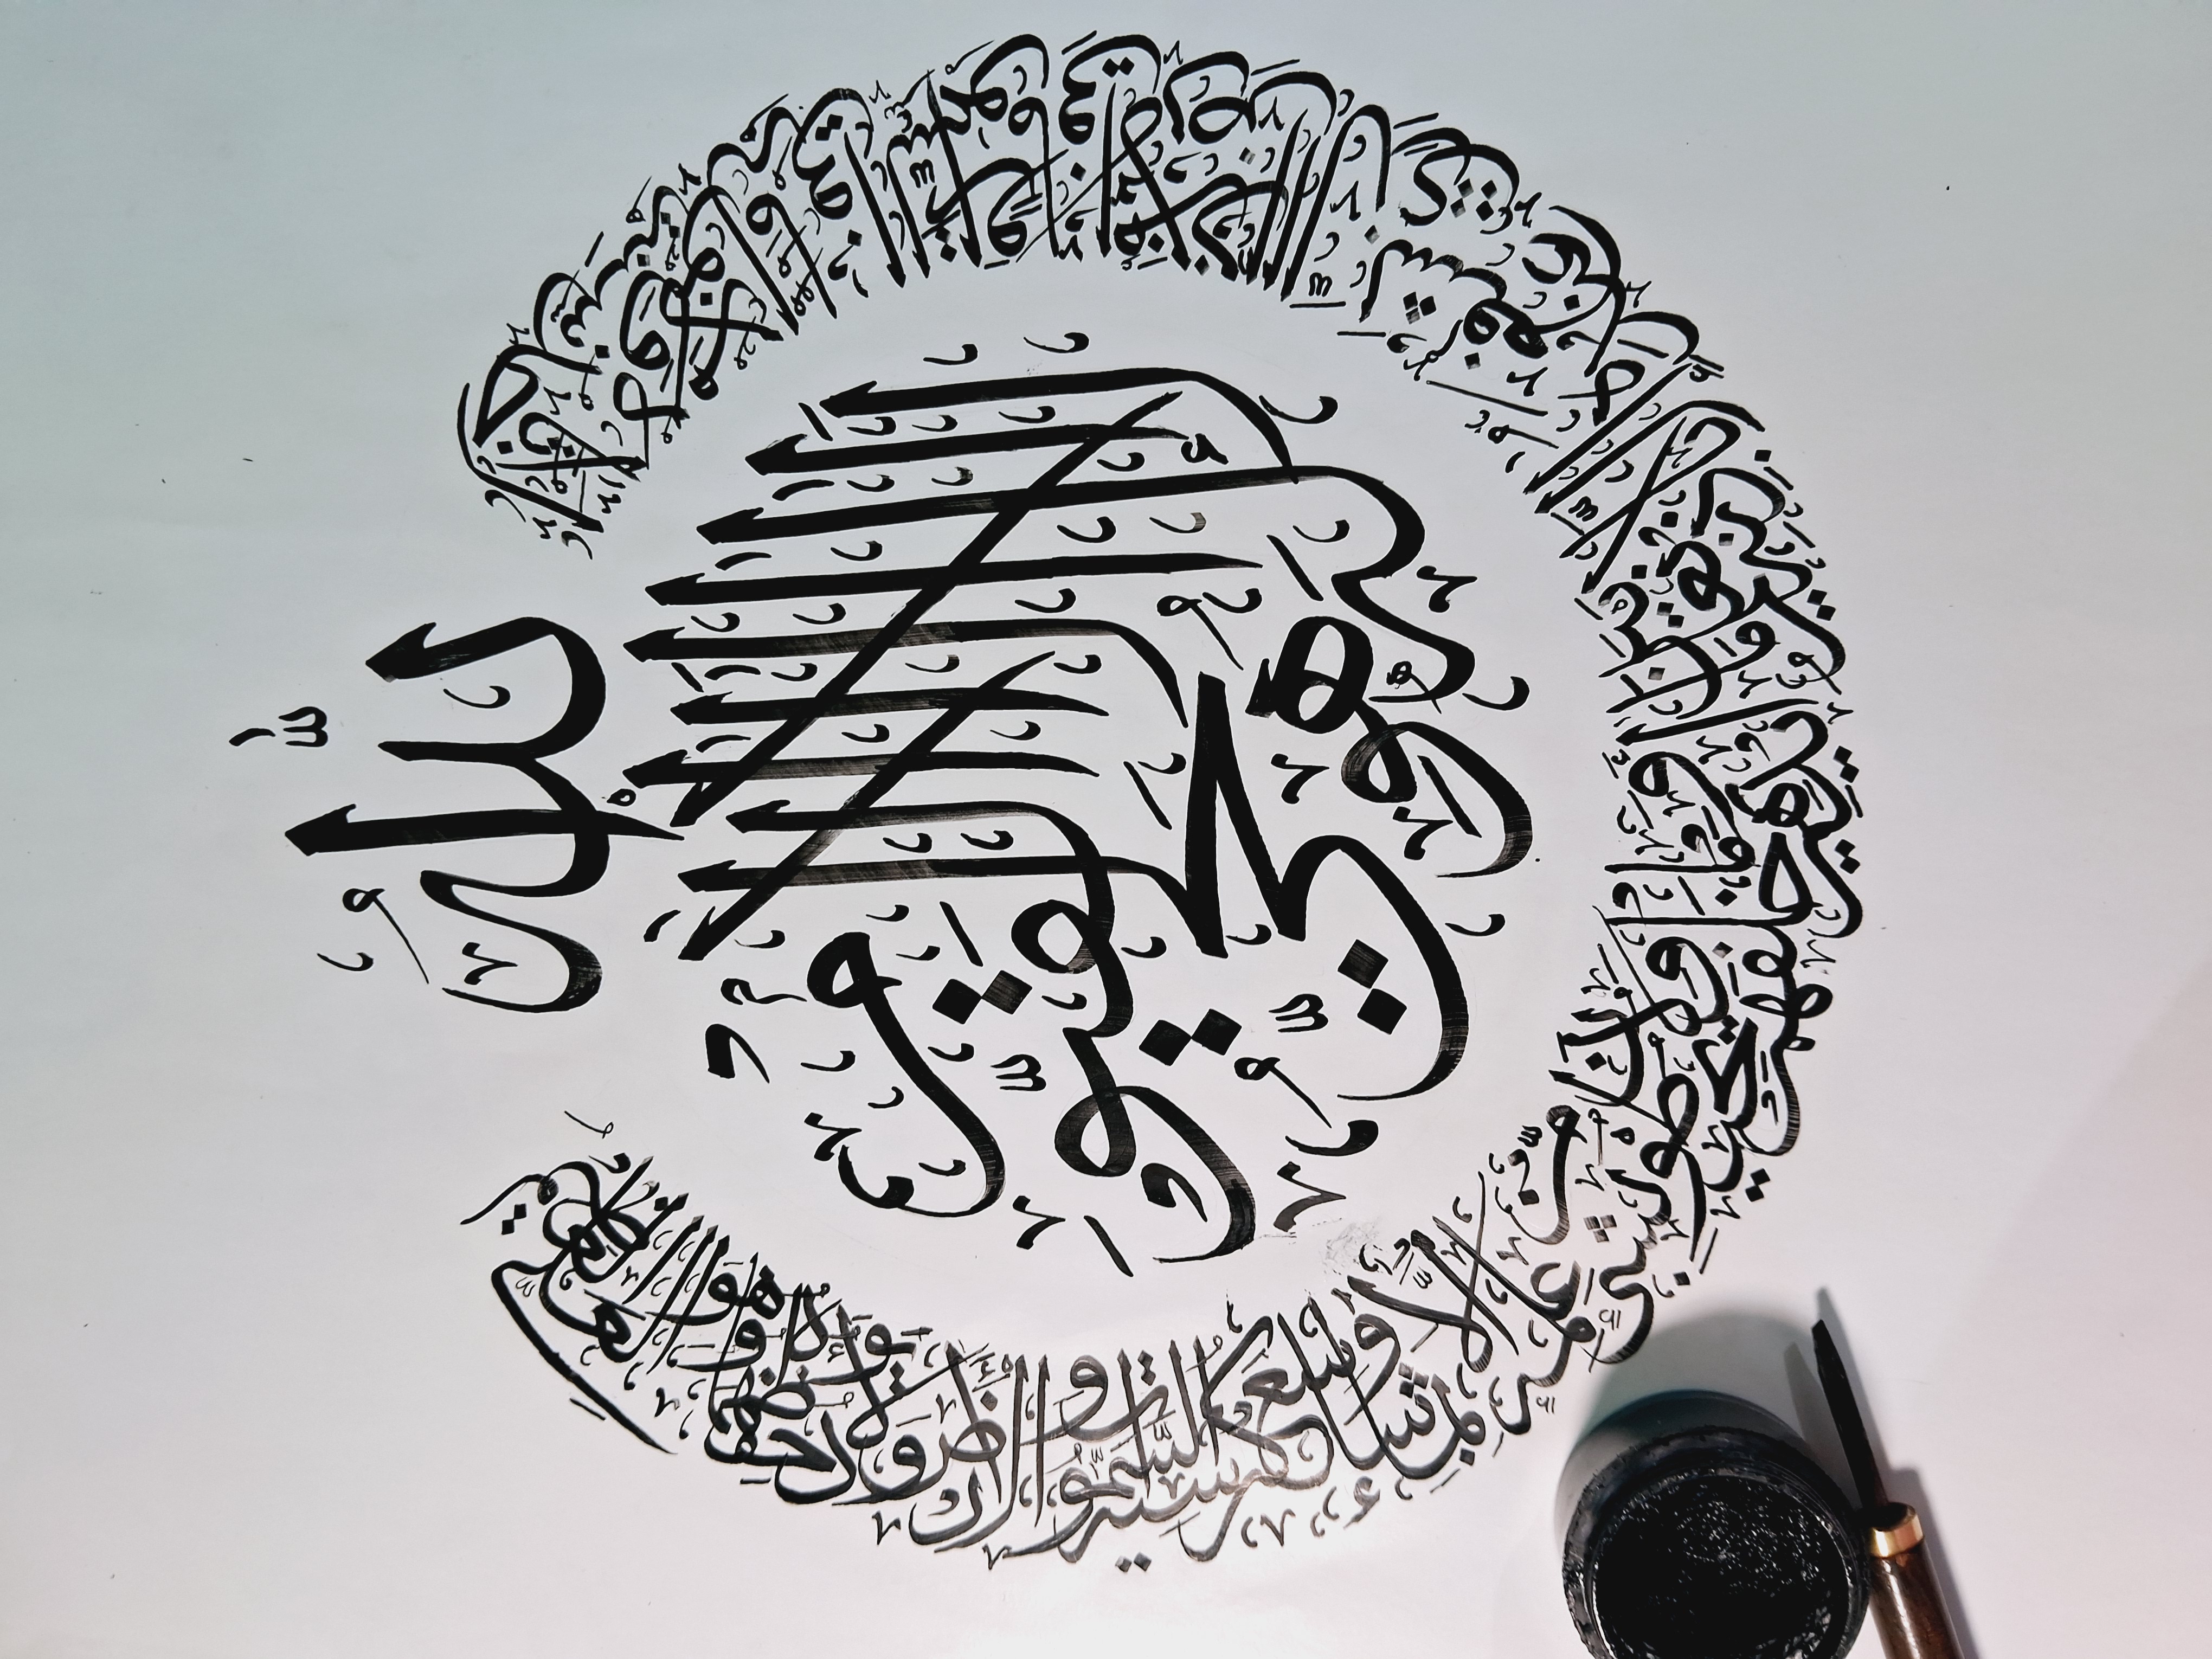 ٱللَّهُ
لَا إِلَٰهَ إِلَّا هُوَ الْحَيُّ الْقَيُّومُ
لَا تَأْخُذُهُ سِنَةٌ وَلَا نَوْمٌ لَهُ مَا فِي السَّمَاوَاتِ وَمَا فِي الْأَرْضِ مَنْ ذَا الَّذِي يَشْفَعُ عِنْدَهُ إِلَّا بِإِذْنِهِ يَعْلَمُ مَا بَيْنَ أَيْدِيهِمْ وَمَا خَلْفَهُمْ وَلَا يُحِيطُونَ بِشَيْءٍ مِنْ عِلْمِهِ إِلَّا بِمَا شَاءَ وَسِعَ كُرْسِيُّهُ السَّمَاوَاتِ وَالْأَرْضَ وَلَا يَئُودُهُ حِفْظُهُمَا وَهُوَ الْعَلِيُّ الْعَظِيمُ